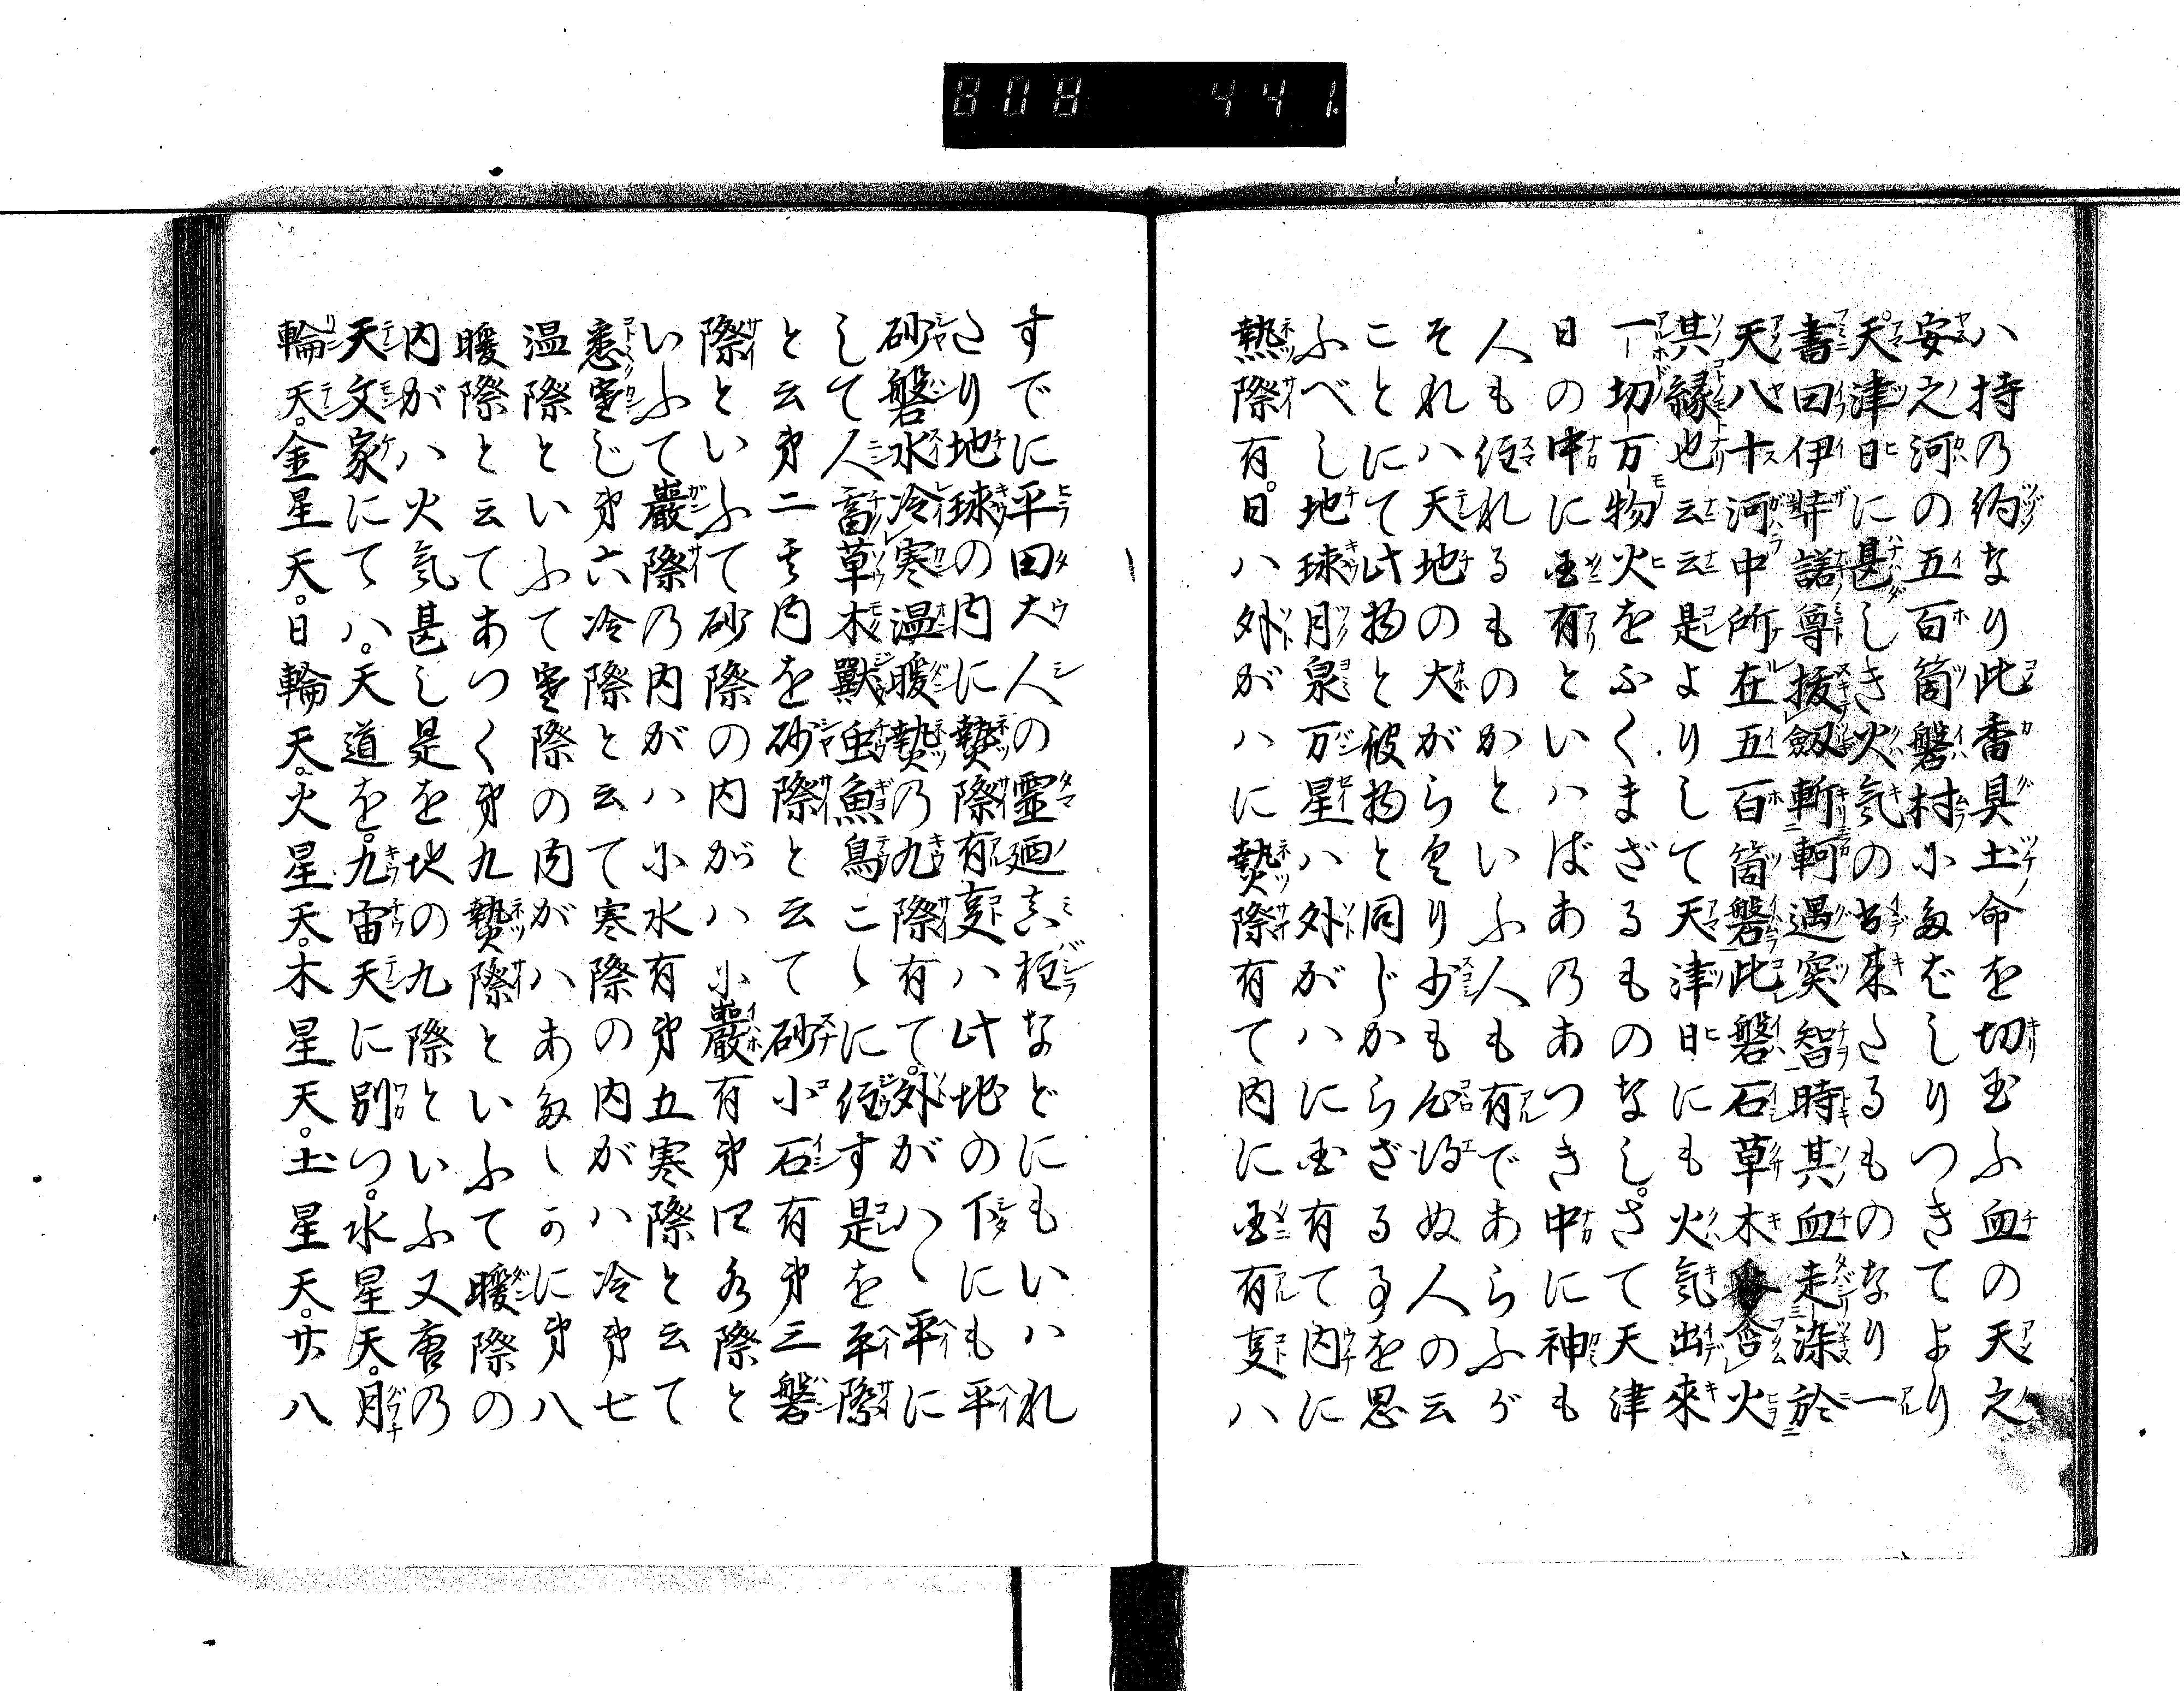 808 441.
ハ持乃約なり此香具土命を切玉ふ血の天之
安之河の五百箇磐村に多ばしりつきてより
天津日に甚しき火気の出来たるものなり一
書曰伊弉諾尊抜劔斬軻遇突智時其血走染於
天八十河中所在五百箇磐此磐石草木含火
其縁也云云是よりして天津日にも火気出来
一切万物火をふくまざるものなし。さて天津
日の中に国有といハばあ乃あつき中に神も
人も住れるものかといふ人も有であらふが
それハ天地の大がらより少も心得ぬ人の云
ことにて此物と彼物と同じからざる事を思
ふべし地球月泉万星ハ外がハに国有て内に
熱際有。日ハ外がハに熱際有て内に国有事ハ
すでに平田大人の霊廼真柱などにもいハれ
たり地球の内に熱際有事ハ此地の下にも平
砂磐水冷寒温暖熱乃九際有て。外がハヽ平に
して人畜草木獣虫魚鳥こゝに住す是を平際
と云第二其内を砂際と云て砂小石有第三磐
際といふて砂際の内がハ小巖有第四水際と
いふて巖際乃内がハ小水有第五寒際と云て
悉寒じ第六冷際と云て寒際の内がハ冷第七
温際といふて寒際の内がハあたゝかに第八
暖際と云てあつく第九熱際といふて暖際の
内がハ火気甚し是を地の九際といふ又唐乃
天文家にてハ。天道を。九宙天に別つ。水星天。月
輪天。金星天。日輪天。火星天。木星天。土星天。廿八